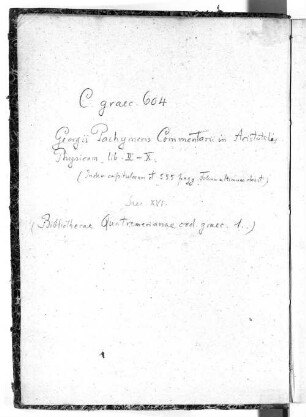 C. graec. 604
Georgii Pachymeris Commentarii in Aristotelis
Physicam, lib.
(Index capitulorum et 585 pagg.
Saec. XVI.
(Bibliothecae Quatremerianae cod. graec. 1.)